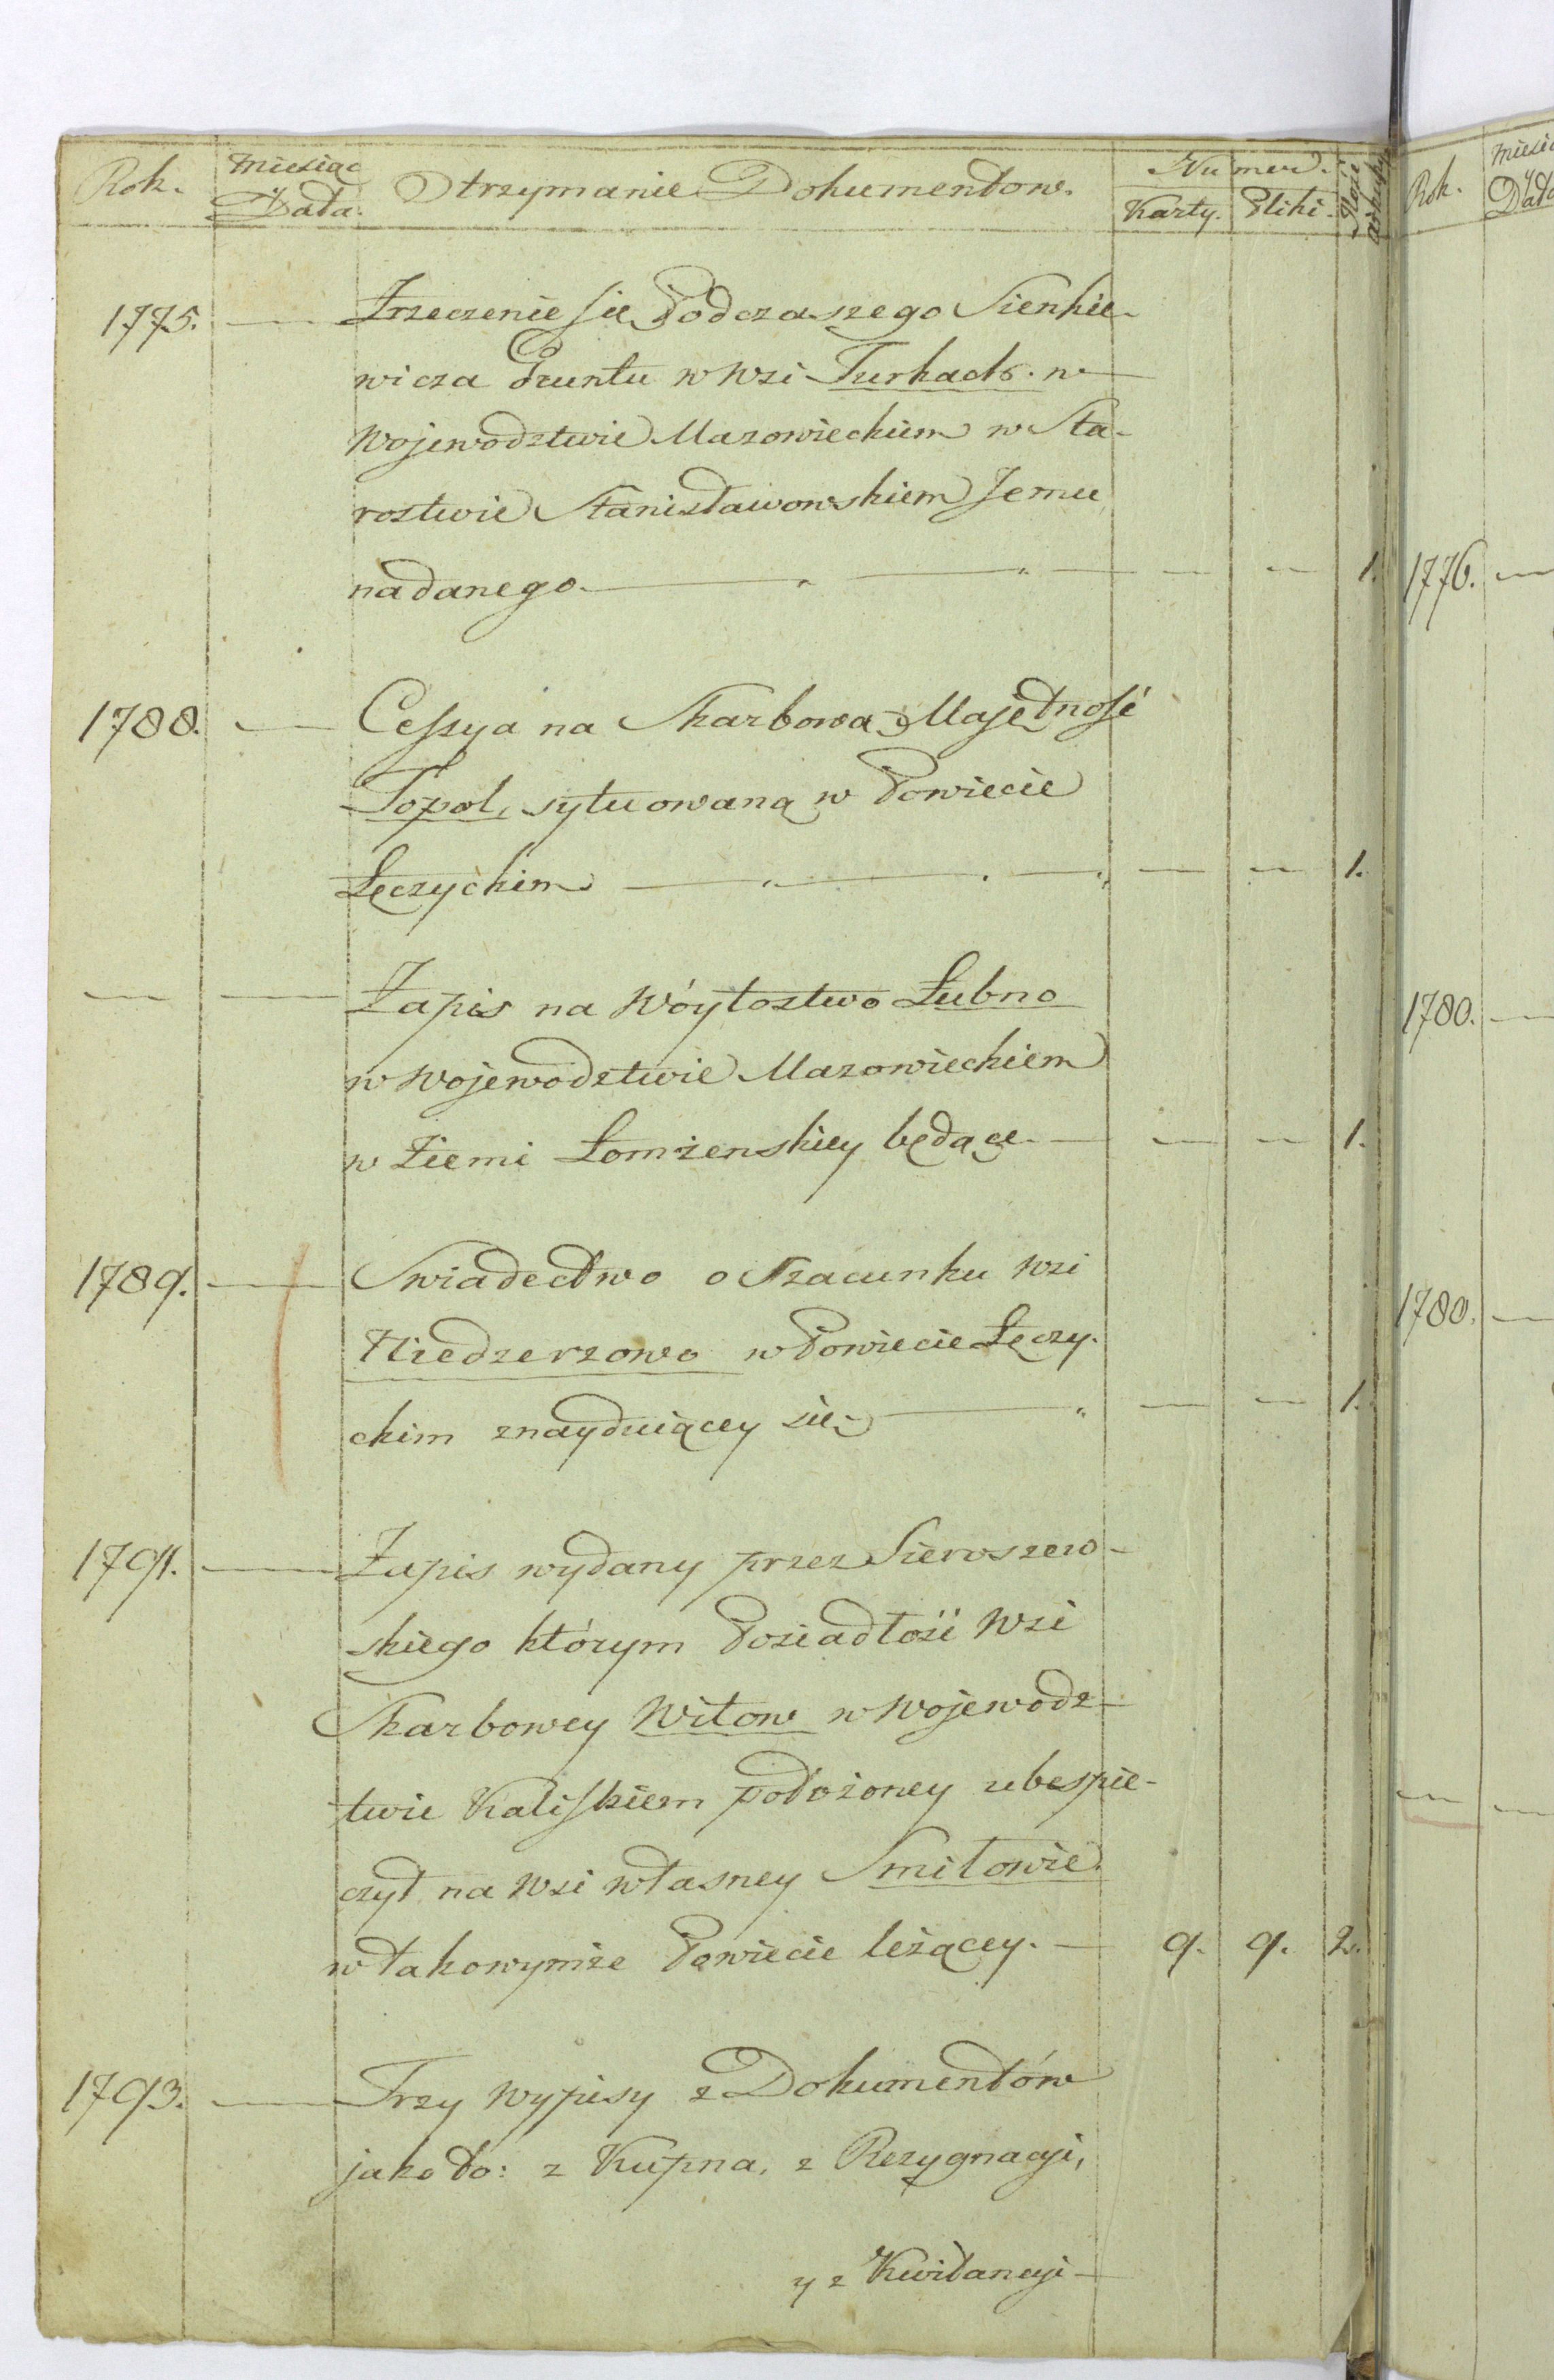 Rok. Miesiąc y Data. Otrzymanie Dokumentow. Numer.
Karty. Pliki. Ilość arkuszy
1775. Zrzeczenie się Podczaszego Sienkie-
wicza Gruntu w Wsi Turkach. w
Wojewodztwie Mazowieckiem w Sta-
roztwie Stanisławowskiem Jemu
nadanego. 1.
1788. Cessya na Skarbową Majętność
Topol, sytuowaną w Powiecie
Łęczyckim 1.
Zapis na Wóytoztwo Łubno
w Wojewodztwie Mazowieckiem
w Ziemi Łomżenskiey będące. 1.
1789. Swiadectwo o Szacunku Wsi
Niedzerzowo w Powiecie Łęczy-
ckim znayduiącey się 1.
1791. Zapis wydany przez Sieroszew-
skiego którym Posiadłość Wsi
Skarbowey Witow w Wojewodz-
twie Kaliskiem położoney ubespie-
czył na Wsi własney Smiłowie
w takowymże Powiecie leżącey. 9. 9. 2.
1793. Trzy Wypisy z Dokumentów
jako to: z Kupna, z Rezygnacyi,
y z Kwitancyi
Rok.
1776.
1780.
1780.